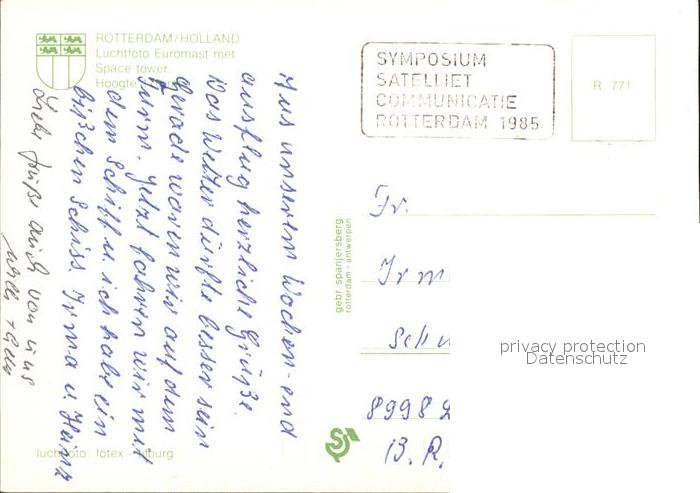 ROTTERDAM/HOLLAND
Luchtfoto Euromast met
Space tower
Hoogte
Aus unserem Wochen-end
ausflug herzliche Grüße.
Das Wetter dürfte besser sein
Gerade waren wir auf dem
Turm. Jetzt fahren wir mit
dem Schiff u. ich habe ein
bißchen Schiss. Irma u. Heinz
Liebe Grüße auch von uns
Willi +
luchtfoto: fotex -
gebr. spanjersberg
rotterdam - antwerpen
SYMPOSIUM
SATELLIET
COMMUNICATIE
ROTTERDAM 1985
R. 771
Fr.
Irm
Schu
8998
B. R.
privacy protection
Datenschutz